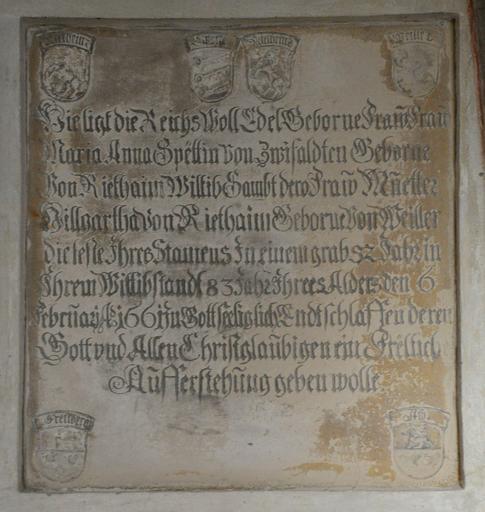 Hie ligt die Reichs Woll Edel Geborne Fraw Fraw
Maria Anna Spettin von Zwifaldten Geborne
Von Riethaim Witib Sambt dero Fraw Muetter
Hillgartha Von Riethaim Geborne Von Weiller
die leste Ihres Stamens In einem grab 52 Jahr in
Ihrem Wittibstandt 83 Jahr Ihrees Alders den 6
February In Gott seeliglich Endtschlaffen deren
Gott und Allen Christglaubigen ein Frelich
Aufferstehung geben wolle
Freiberg